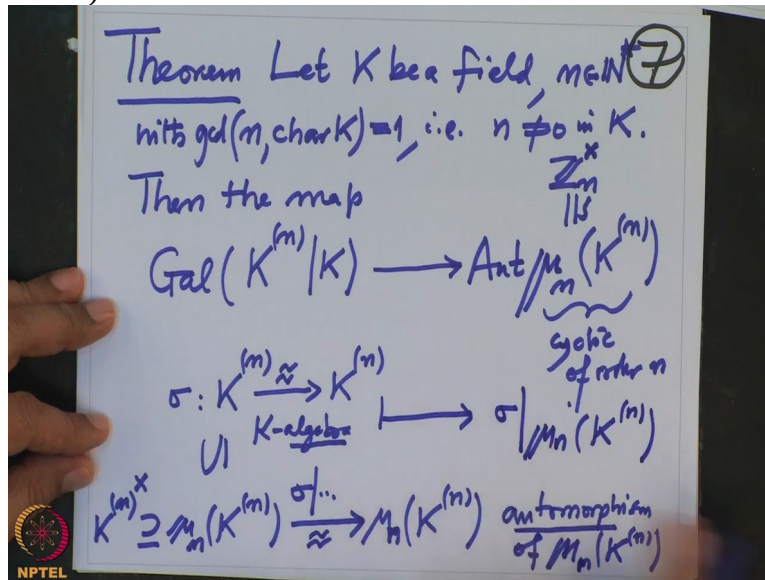 Theorem Let K be a field, n∈ℕ* ⑦
with gcd(n, char K) = 1, i.e. n ≠ 0 in K.
Then the map
ℤ_n^×
||S
Gal(K^(n)|K) ⟶ Aut μ_n(K^(n))
cyclic
of order n
σ : K^(n) ⟶^≈ K^(n) ⟼ σ|μ_n(K^(n))
K-algebra
∪|
K^(n)^× ⊇ μ_n(K^(n)) ⟶^{σ|...}_≈ μ_n(K^(n)) automorphism
of μ_n(K^(n))
NPTEL